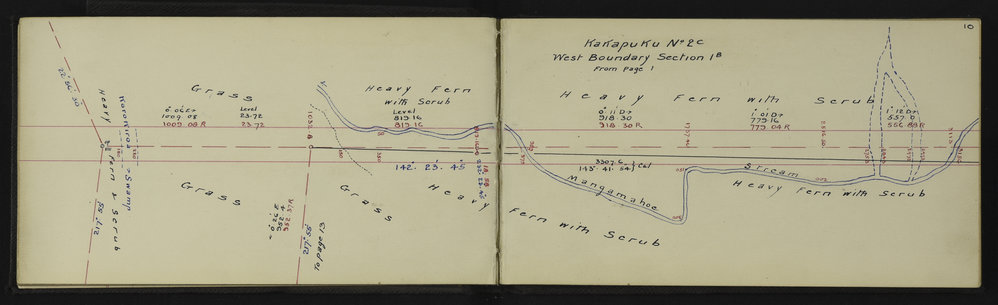 10
KaKapuKu Nº 2c
West Boundary Section 1B
From Page 1
Grass
Heavy Fern
with Scrub
Heavy Fern with Scrub
Level
1009.08
23.72
1009.08 R
23.72
Level
819.16
819.16
0° 11 D↑
918.30
918.30 R
1° 01 D↑
779.16
779.04 R
1° 12 D↑
557.0
556.88 R
142. 23. 45
3307.6
143. 41. 54 } Cal
Mangamahoe
Stream
Heavy Fern with Scrub
Heavy
Fern & Scrub
Swamp
Grass
Grass
Heavy
Fern with Scrub
952.4
952.37 R
217° 55'
217° 55'
To page 13